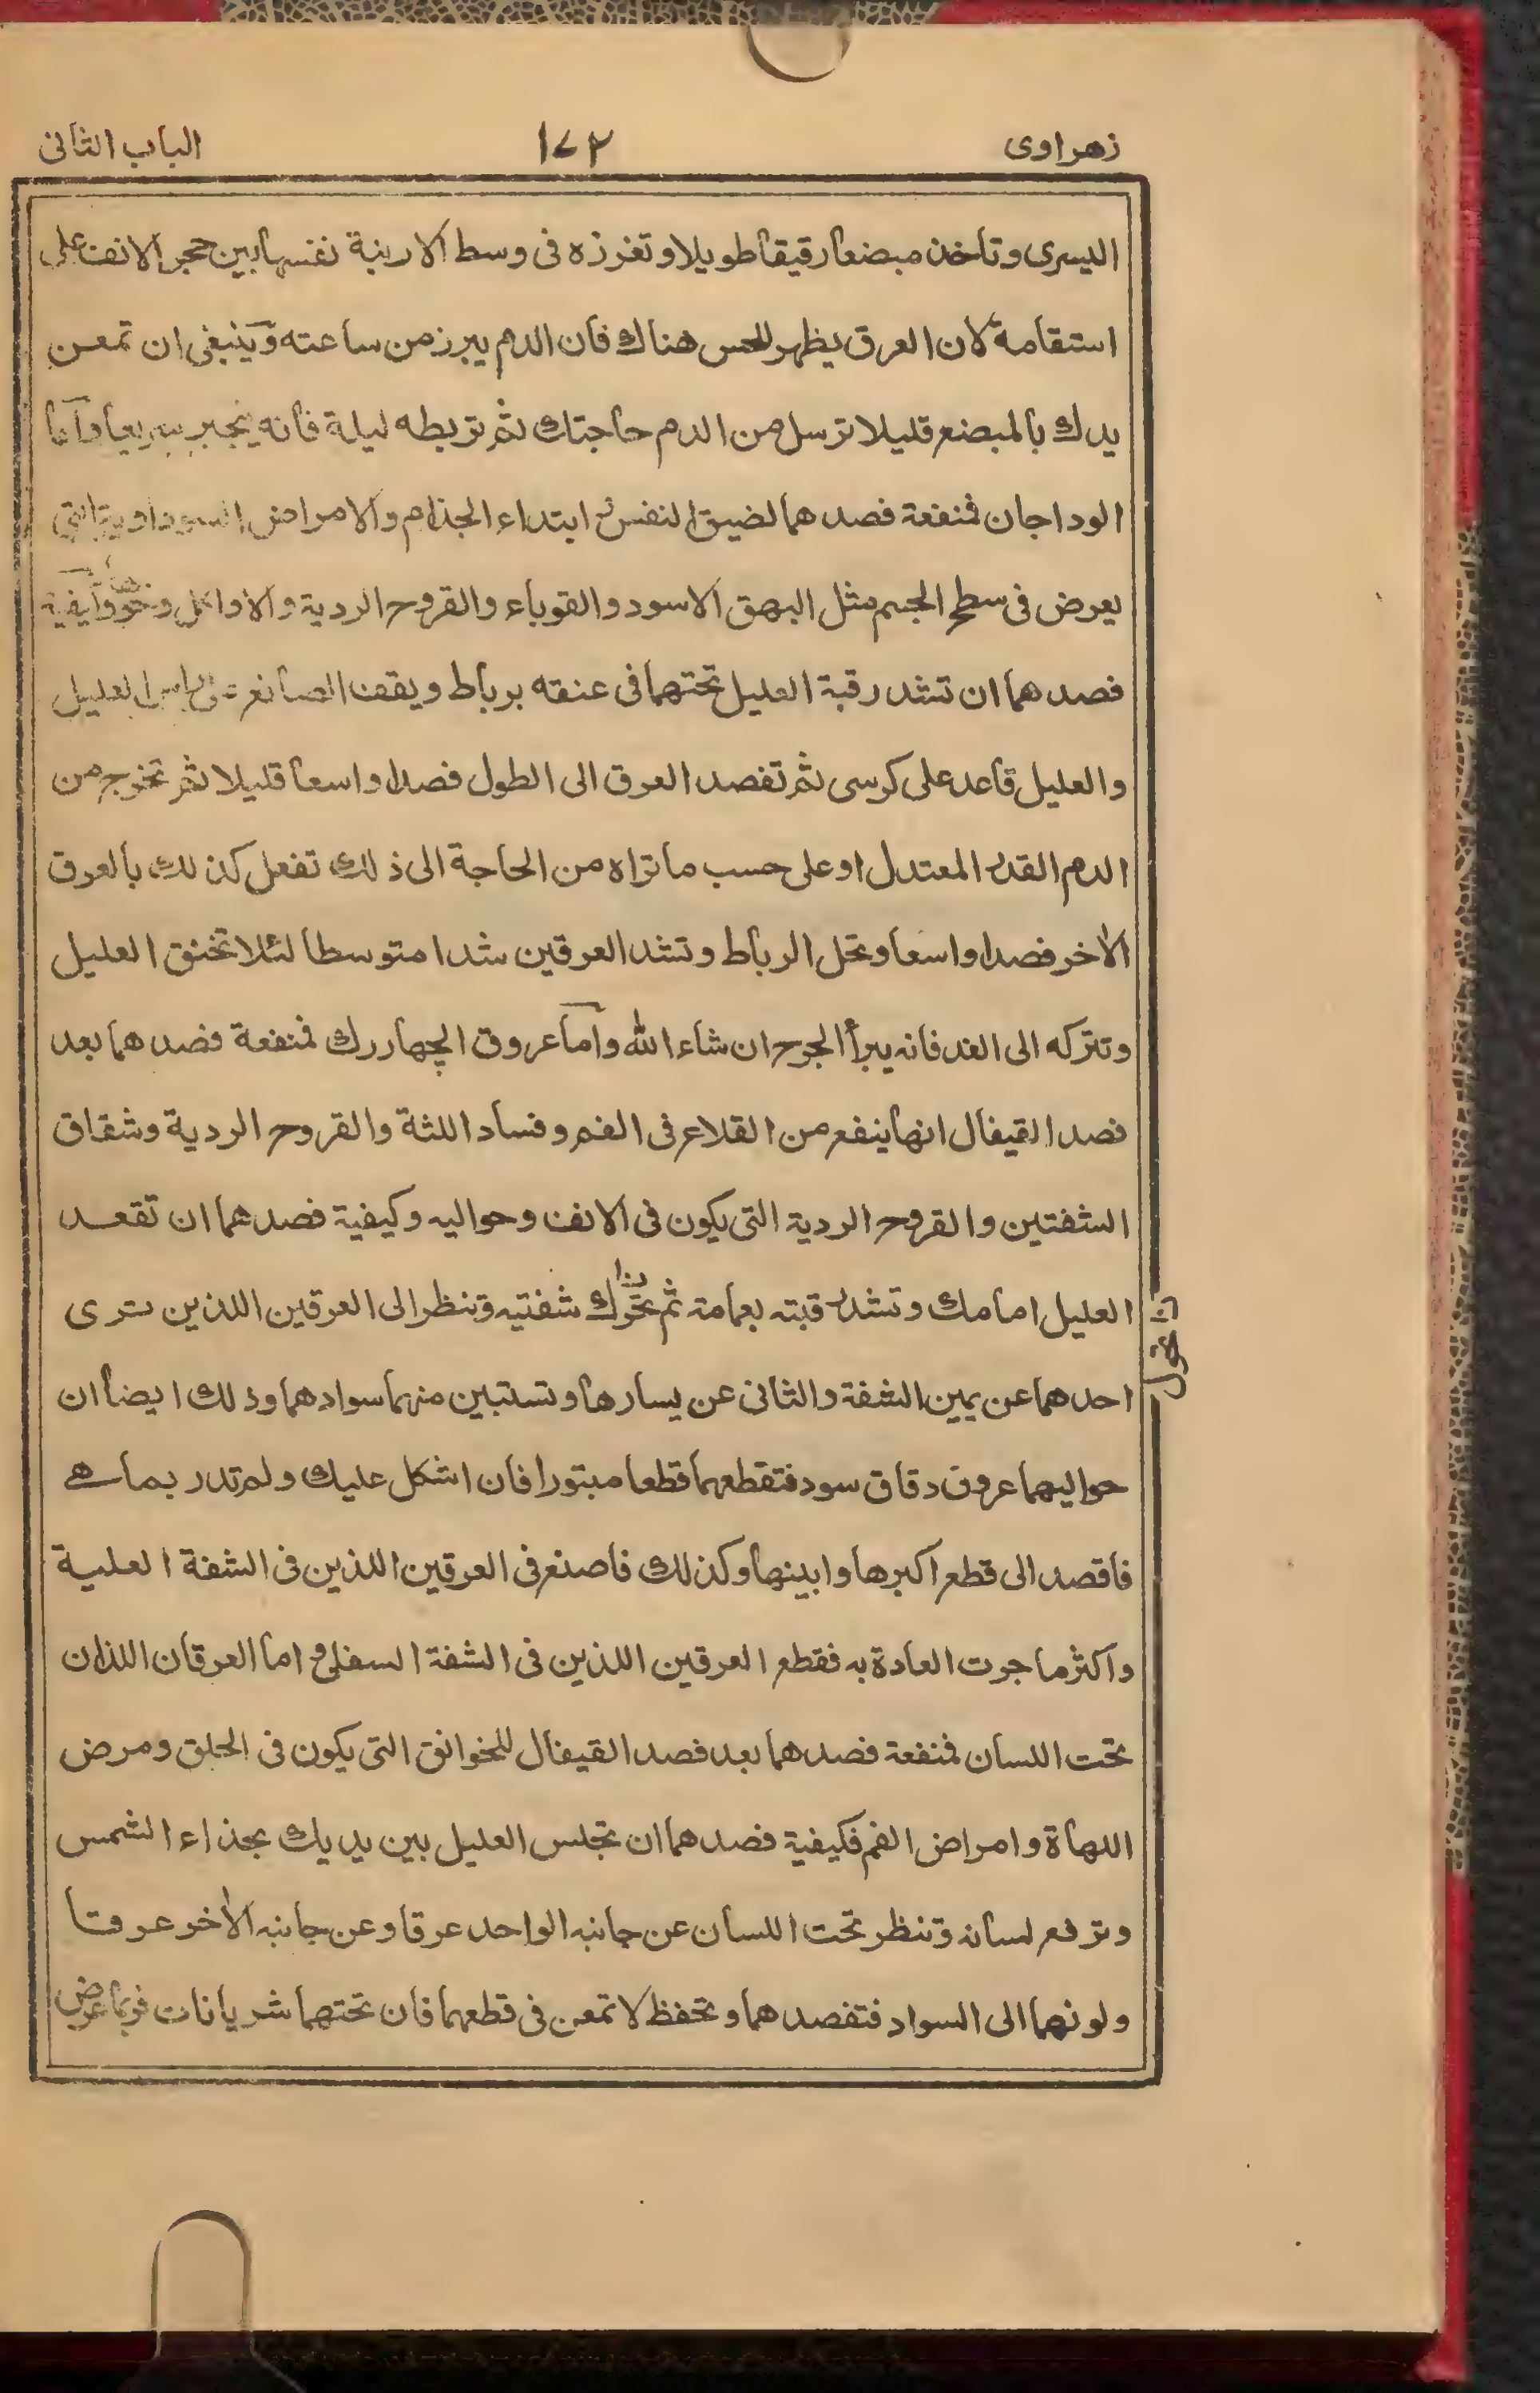 زهراوى ١٧٢ الباب الثانى
اليسرى وتاخذ مبضعا رقيقا طويلا وتغرزه فى وسط الارنبة نفسها بين حجر الانف على
استقامة لان العرق يظهر للحس هناك فان الدم يبرز من ساعته وينبغى ان تمعن
يدك بالمبضع قليلا ترسل من الدم حاجتك ثم تربطه ليلة فانه ينجبر سريعا واما
الوداجان فمنفعة فصدهما لضيق النفس ابتداء الجذام والامراض السوداوية التى
يعرض فى سطح الجسم مثل البهق الاسود والقوباء والقروح الردية والاواكل ونحوها
فصدهما ان تشد رقبة العليل تحتهما فى عنقه برباط ويقف الصانع على راس العليل
والعليل قاعد على كرسى ثم تفصد العرق الى الطول فصدا واسعا قليلا ثم تخرج من
الدم القدر المعتدل او على حسب ما تراه من الحاجة الى ذلك تفعل كذلك بالعرق
الاخر فصدا واسعا وتحل الرباط وتشد العرقين شدا متوسطا لئلا تخنق العليل
وتتركه الى الغد فانه يبرأ الجرح ان شاء الله واما عروق الچهاررك فمنفعة فصدهما بعد
فصد القيفال انها ينفع من القلاع فى الفم وفساد اللثة والقروح الردية وشقاق
الشفتين والقروح الردية التى يكون فى الانف وحواليه وكيفية فصدهما ان تقعد
العليل امامك وتشد رقبته بعمامة ثم تحرك شفتيه وتنظر الى العرقين اللذين ترى
احدهما عن يمين الشفة والثانى عن يسارها وتستبين منهما سوادهما وذلك ايضا ان
حواليهما عروق دقاق سود فتقطعهما قطعا مبتورا فان اشكل عليك ولم تدر بما هى
فاقصد الى قطع اكبرها وابينها وكذلك فاصنع فى العرقين اللذين فى الشفة العلية
واكثر ما جرت العادة به فقطع العرقين اللذين فى الشفة السفلى واما العرقان اللذان
تحت اللسان فمنفعة فصدهما بعد فصد القيفال للخوانق التى يكون فى الحلق ومرض
اللهاة وامراض الفم فكيفية فصدهما ان تجلس العليل بين يديك بحذاء الشمس
وترفع لسانه وتنظر تحت اللسان عن جانبه الواحد عرقا وعن جانبه الاخر عرقا
ولونهما الى السواد فتفصدهما وتحفظ لا تمعن فى قطعهما فان تحتهما شريانات فربما عرض